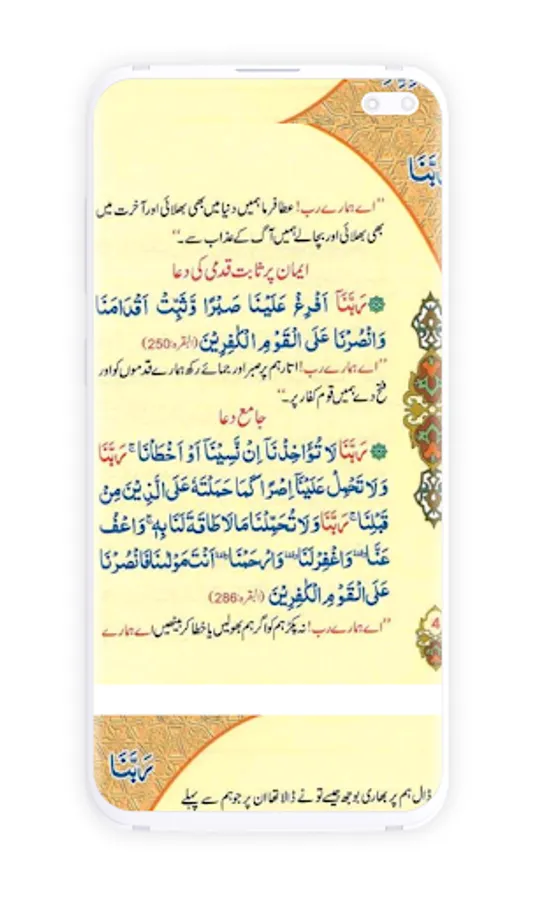 رَبَّنَا
’’اے ہمارے رب! عطا فرما ہمیں دنیا میں بھی بھلائی اور آخرت میں
بھی بھلائی اور بچا لے ہمیں آگ کے عذاب سے۔‘‘
ایمان پر ثابت قدمی کی دعا
رَبَّنَآ اَفْرِغْ عَلَیْنَا صَبْرًا وَّثَبِّتْ اَقْدَامَنَا
وَانْصُرْنَا عَلَی الْقَوْمِ الْکٰفِرِیْنَ (البقرہ:250)
’’اے ہمارے رب! اتار ہم پر صبر اور جمائے رکھ ہمارے قدموں کو اور
فتح دے ہمیں قوم کفار پر۔‘‘
جامع دعا
رَبَّنَا لَا تُؤَاخِذْنَآ اِنْ نَّسِیْنَآ اَوْ اَخْطَاْنَا ۚ رَبَّنَا
وَلَا تَحْمِلْ عَلَیْنَآ اِصْرًا کَمَا حَمَلْتَهٗ عَلَی الَّذِیْنَ مِنْ
قَبْلِنَا ۚ رَبَّنَا وَلَا تُحَمِّلْنَا مَا لَا طَاقَةَ لَنَا بِهٖ ۚ وَاعْفُ
عَنَّا وَاغْفِرْ لَنَا وَارْحَمْنَا اَنْتَ مَوْلٰىنَا فَانْصُرْنَا
عَلَی الْقَوْمِ الْکٰفِرِیْنَ (البقرہ:286)
’’اے ہمارے رب! نہ پکڑ ہم کو اگر ہم بھولیں یا خطا کر بیٹھیں اے ہمارے
4
رَبَّنَا
ڈال ہم پر بھاری بوجھ جیسے تو نے ڈالا تھا ان پر جو ہم سے پہلے